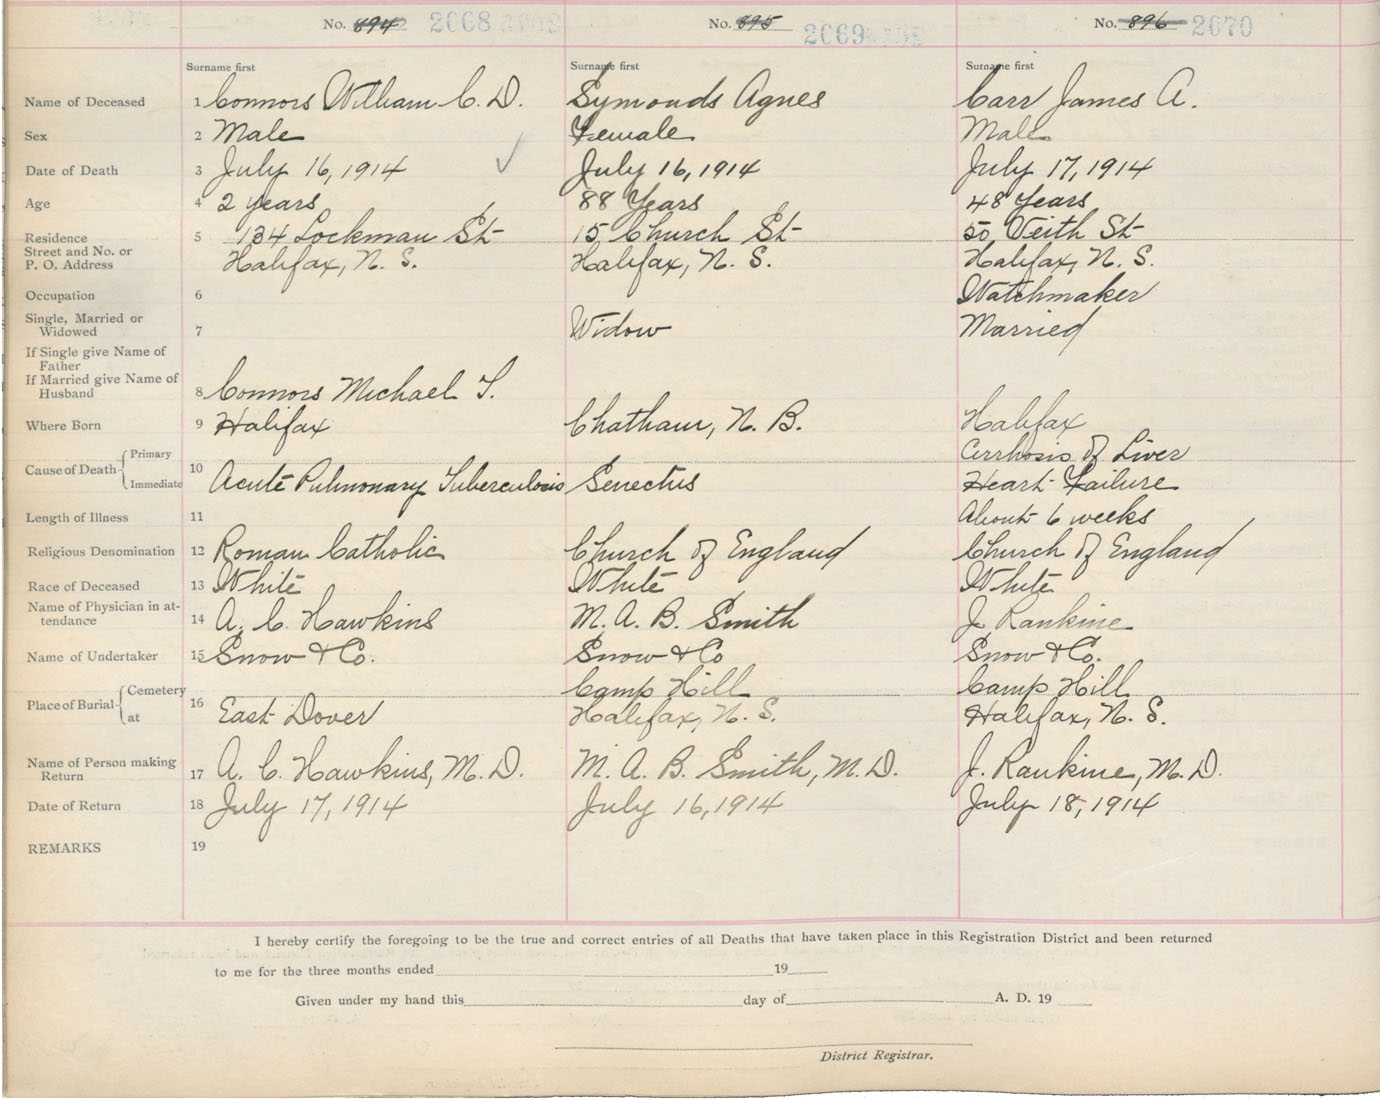 No. 894 2068
No. 895 2069
No. 896 2070
Surname first
Surname first
Surname first
Name of Deceased 1 Connors William C. D. Symonds Agnes Carr James A.
Sex 2 Male Female Male
Date of Death 3 July 16, 1914 July 16, 1914 July 17, 1914
Age 4 2 years 88 Years 48 Years
Residence 5 134 Lockman St 15 Church St 50 Veith St
Street and No. or
P. O. Address Halifax, N. S. Halifax, N. S. Halifax, N. S.
Occupation 6 Watchmaker
Single, Married or
Widowed 7 Widow Married
If Single give Name of
Father
If Married give Name of
Husband 8 Connors Michael T.
Where Born 9 Halifax Chatham, N. B. Halifax
Cause of Death Primary 10 Cirrhosis of Liver
Immediate Acute Pulmonary Tuberculosis Senectus Heart Failure
Length of Illness 11 About 6 weeks
Religious Denomination 12 Roman Catholic Church of England Church of England
Race of Deceased 13 White White White
Name of Physician in at-
tendance 14 A. C. Hawkins M. A. B. Smith J. Rankine
Name of Undertaker 15 Snow & Co. Snow & Co Snow & Co.
Place of Burial Cemetery 16 Camp Hill Camp Hill
at East Dover Halifax, N. S. Halifax, N. S.
Name of Person making
Return 17 A. C. Hawkins, M. D. M. A. B. Smith, M. D. J. Rankine, M. D.
Date of Return 18 July 17, 1914 July 16, 1914 July 18, 1914
REMARKS 19
I hereby certify the foregoing to be the true and correct entries of all Deaths that have taken place in this Registration District and been returned
to me for the three months ended 19
Given under my hand this day of A. D. 19
District Registrar.